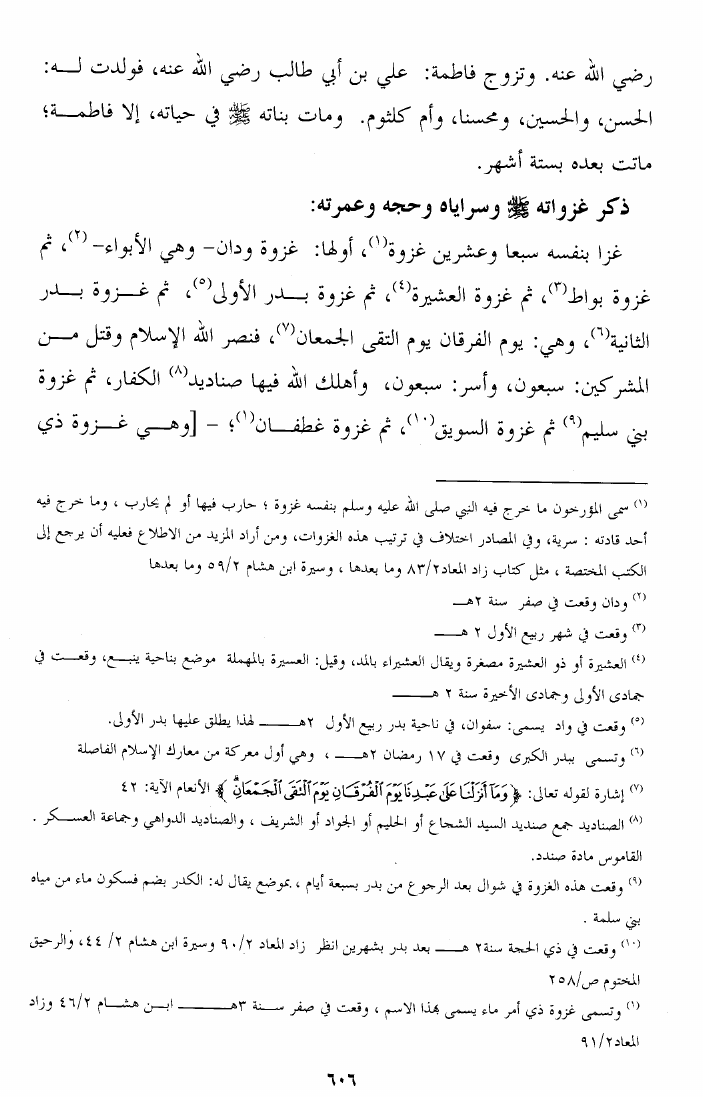 رضي الله عنه. وتزوج فاطمة: علي بن أبي طالب رضي الله عنه، فولدت لـــه:
الحسن، والحسين، ومحسنا، وأم كلثوم. ومات بناته ﷺ في حياته، إلا فاطمـــة؛
ماتت بعده بستة أشهر.
ذكر غزواته ﷺ وسراياه وحجه وعمرته:
غزا بنفسه سبعا وعشرين غزوة(١)، أولها: غزوة ودان- وهي الأبواء-(٢)، ثم
غزوة بواط(٣)، ثم غزوة العشيرة(٤)، ثم غزوة بـــدر الأولى(٥)، ثم غـــزوة بـــدر
الثانية(٦)، وهي: يوم الفرقان يوم التقى الجمعان(٧)، فنصر الله الإسلام وقتل مـــن
المشركين: سبعون، وأسر: سبعون، وأهلك الله فيها صناديد(٨) الكفار، ثم غزوة
بني سليم(٩) ثم غزوة السويق(١٠)، ثم غزوة غطفـــان(١)؛ - [وهـــي غـــزوة ذي
(١) سمى المؤرخون ما خرج فيه النبي صلى الله عليه وسلم بنفسه غزوة ؛ حارب فيها أو لم يحارب ، وما خرج فيه
أحد قادته : سرية، وفي المصادر اختلاف في ترتيب هذه الغزوات، ومن أراد المزيد من الاطلاع فعليه أن يرجع إلى
الكتب المختصة ، مثل كتاب زاد المعاد٨٣/٢ وما بعدها ، وسيرة ابن هشام ٥٩/٢ وما بعدها
(٢) ودان وقعت في صفر سنة ٢هـــ
(٣) وقعت في شهر ربيع الأول ٢ هـــ
(٤) العشيرة أو ذو العشيرة مصغرة ويقال العشيراء بالمد، وقيل: العسيرة بالمهملة موضع بناحية ينبـــع، وقعـــت في
جمادى الأولى وجمادى الأخيرة سنة ٢ هـــ
(٥) وقعت في واد يسمى: سفوان، في ناحية بدر ربيع الأول ٢هـــ لهذا يطلق عليها بدر الأولى.
(٦) وتسمى ببدر الكبرى وقعت في ١٧ رمضان ٢هـــ ، وهي أول معركة من معارك الإسلام الفاصلة
(٧) إشارة لقوله تعالى: ﴿ وَمَا أَنزَلْنَا عَلَىٰ عَبْدِنَا يَوْمَ ٱلْفُرْقَانِ يَوْمَ ٱلْتَقَى ٱلْجَمْعَانِ ﴾ الأنعام الآية: ٤٢
(٨) الصناديد جمع صنديد السيد الشجاع أو الحليم أو الجواد أو الشريف ، والصناديد الدواهي وجماعة العسـكر .
القاموس مادة صندد.
(٩) وقعت هذه الغزوة في شوال بعد الرجوع من بدر بسبعة أيام ، بموضع يقال له: الكدر بضم فسكون ماء من مياه
بني سلمة .
(١٠) وقعت في ذي الحجة سنة٢ هـــ بعد بدر بشهرين انظر زاد المعاد ٩٠/٢ وسيرة ابن هشام ٢/ ٤٤، والرحيق
المختوم ص/٢٥٨
(١) وتسمى غزوة ذي أمر ماء يسمى بهذا الاسم ، وقعت في صفر ســنة ٣هـــ ابـــن هشـــام ٤٦/٢ وزاد
المعاد٩١/٢
٦٠٦